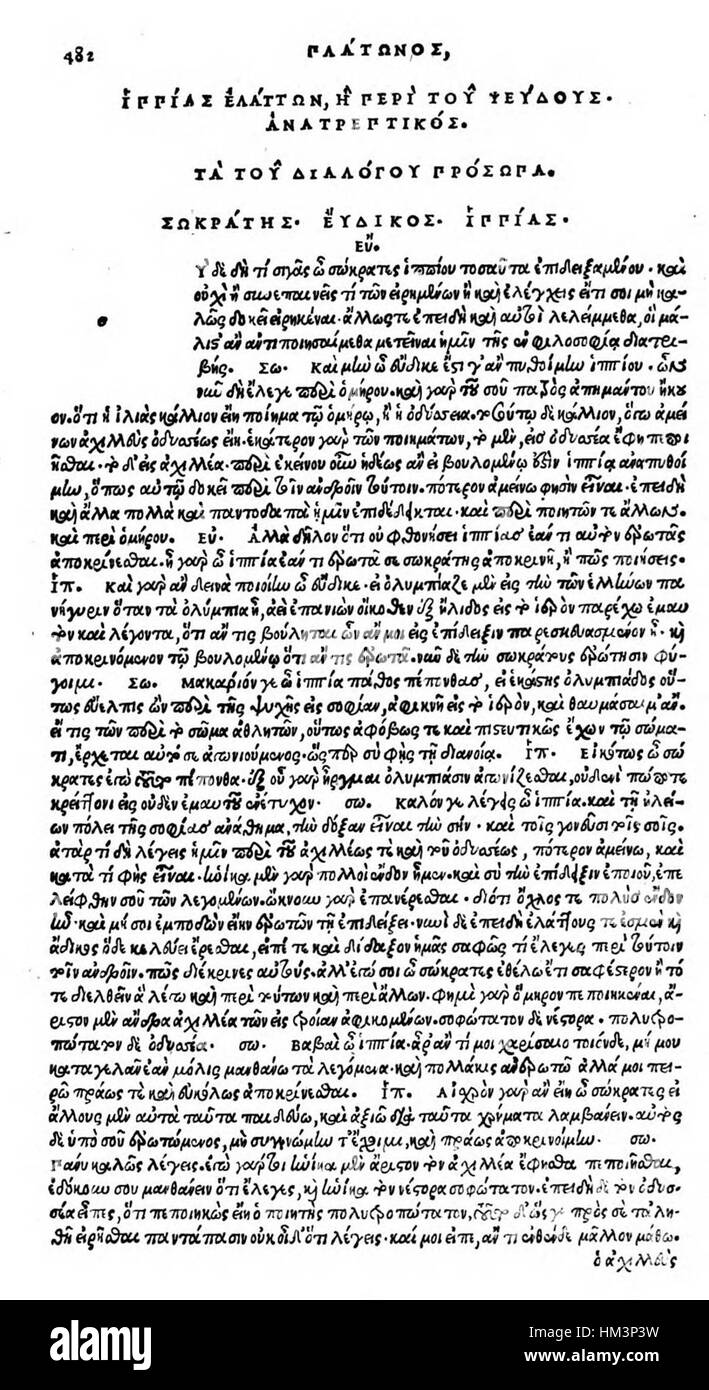 482
ΠΛΆΤΩΝΟΣ,
ἹΠΠΊΑΣ ἘΛΆΤΤΩΝ, Ἢ ΠΕΡῚ ΤΟΥ͂ ΨΕΎΔΟΥΣ·
ἈΝΑΤΡΕΠΤΙΚΌΣ.
ΤᾺ ΤΟΥ͂ ΔΙΑΛΌΓΟΥ ΠΡΌΣΩΠΑ.
ΣΩΚΡΆΤΗΣ· ἜΥΔΙΚΟΣ· ἹΠΠΊΑΣ·
ΕΥ̓.
Υ̓ δὲ δὴ τί σιγᾶς ὦ σώκρατες ἱππίου τοσαῦτα ἐπιδειξαμένου· καὶ
οὐχὶ ἢ συνεπαινεῖς τί τῶν εἰρημένων ἢ καὶ ἐλέγχεις εἴ τι σοι μὴ κα-
λῶς δοκεῖ εἰρηκέναι· ἄλλως τε ἐπειδὴ καὶ αὐτοὶ λελείμμεθα, οἳ μά-
λιστ' ἂν ἀντιποιησαίμεθα μετεῖναι ἡμῖν τῆς ἐν φιλοσοφίᾳ διατρι-
βῆς. Σω. Καὶ μὴν ὦ εὔδικε ἔστι γ' ἂν πυθοίμην ἱππίου· ὧν
νῦν δὴ ἔλεγε περὶ ὁμήρου· καὶ γὰρ τοῦ σοῦ πατρὸς ἀπημάντου ἤκου
ον. ὅτι ἡ ἰλιὰς κάλλιον εἴη ποίημα τῷ ὁμήρῳ, ἢ ἡ ὀδύσσεια. τοσούτῳ δὲ κάλλιον, ὅσῳ ἀμεί
νων ἀχιλλεὺς ὀδυσσέως εἴη· ἑκάτερον γὰρ τῶν ποιημάτων, τὸ μὲν, εἰς ὀδυσσέα ἔφη πεποι
ῆσθαι· τὸ δ' εἰς ἀχιλλέα· περὶ ἐκείνου οὖν ἡδέως ἂν εἰ βουλομένῳ ἐστὶν ἱππίᾳ ἀναπυθοί
μην, ὅπως αὐτῷ δοκεῖ περὶ τοῖν ἀνδροῖν τούτοιν. πότερον ἀμείνω φησὶν εἶναι· ἐπειδὴ
καὶ ἄλλα πολλὰ καὶ παντοδαπὰ ἡμῖν ἐπιδέδεικται· καὶ περὶ ποιητῶν τε ἄλλων·
καὶ περὶ ὁμήρου. Εὐ. Ἀλλὰ δῆλον ὅτι οὐ φθονήσει ἱππίας ἐάν τι αὐτὸν ἐρωτᾷς
ἀποκρίνεσθαι. ἢ γὰρ ὦ ἱππία ἐάν τι ἐρωτᾷ σε σωκράτης ἀποκρινῇ, ἢ πῶς ποιήσεις·
Ἱπ. Καὶ γὰρ ἂν δεινὰ ποιοίην ὦ εὔδικε· εἰ ὀλυμπίαζε μὲν εἰς τὴν τῶν ἑλλήνων πα
νήγυριν ὅταν τὰ ὀλύμπια ᾖ, ἀεὶ ἐπανιὼν οἴκοθεν ἐξ ἤλιδος εἰς τὸ ἱερὸν παρέχω ἐμαυ
τὸν καὶ λέγοντα, ὅτι ἄν τις βούληται ὧν ἄν μοι εἰς ἐπίδειξιν παρεσκευασμένον ᾖ· καὶ
ἀποκρινόμενον τῷ βουλομένῳ ὅτι ἄν τις ἐρωτᾷ. νῦν δὲ τὴν σωκράτους ἐρώτησιν φύ-
γοιμι· Σω. Μακάριόν γε ὦ ἱππία πάθος πέπονθας, εἰ ἑκάστης ὀλυμπιάδος οὕ-
τως εὔελπις ὢν περὶ τῆς ψυχῆς εἰς σοφίαν, ἀφικνῇ εἰς τὸ ἱερὸν, καὶ θαυμάσαιμ' ἂν.
εἴ τις τῶν περὶ τὸ σῶμα ἀθλητῶν, οὕτως ἀφόβως τε καὶ πιστευτικῶς ἔχων τῷ σώμα-
τι, ἔρχεται αὐτόσε ἀγωνιούμενος· ὥσπερ σὺ φῂς τῇ διανοίᾳ. Ἱπ. Εἰκότως ὦ σώ
κρατες ἐγὼ τοῦτο πέπονθα. ἐξ οὗ γὰρ ἦργμαι ὀλυμπίασιν ἀγωνίζεσθαι, οὐδενὶ πώποτε
κρείττονι εἰς οὐδὲν ἐμαυτοῦ ἐνέτυχον· σω. Καλόν γε λέγεις ὦ ἱππία. καὶ τῇ ἠλεί-
ων πόλει τῆς σοφίας ἀνάθημα, τὴν δόξαν εἶναι τὴν σήν· καὶ τοῖς γονεῦσι τοῖς σοῖς.
ἀτὰρ τί δὴ λέγεις ἡμῖν περὶ τοῦ ἀχιλλέως τε καὶ τοῦ ὀδυσσέως, πότερον ἀμείνω, καὶ
κατὰ τί φῂς εἶναι· ἡνίκα μὲν γὰρ πολλοὶ ἔνδον ἦμεν. καὶ σὺ τὴν ἐπίδειξιν ἐποιοῦ, ἀπε
λείφθην σοῦ τῶν λεγομένων. ὤκνουν γὰρ ἐπανέρεσθαι· διότι ὄχλος τε πολὺς ἔνδον
ἦν· καὶ μή σοι ἐμποδὼν εἴην ἐρωτῶν τῇ ἐπιδείξει· νυνὶ δὲ ἐπειδὴ ἐλάττους τε ἐσμὲν καὶ
εὔδικος ὅδε κελεύει ἔρεσθαι, εἰπέ τε καὶ δίδαξον ἡμᾶς σαφῶς τί ἔλεγες περὶ τούτοιν
τοῖν ἀνδροῖν. πῶς διέκρινες αὐτούς. ἀλλ' ἐγώ σοι ὦ σώκρατες ἐθέλω ἔτι σαφέστερον ἢ τό
τε διελθεῖν ἃ λέγω καὶ περὶ τούτων καὶ περὶ ἄλλων· φημὶ γὰρ ὅμηρον πεποιηκέναι, ἄ-
ριστον μὲν ἄνδρα ἀχιλλέα τῶν εἰς τροίαν ἀφικομένων. σοφώτατον δὲ νέστορα· πολυτρο-
πώτατον δὲ ὀδυσσέα· σω. Βαβαὶ ὦ ἱππία. ἆρ' ἄν τί μοι χαρίσαιο τοιόνδε, μή μου
καταγελᾶν ἐὰν μόλις μανθάνω τὰ λεγόμενα· καὶ πολλάκις ἀνερωτῶ ἀλλά μοι πει-
ρῶ πράως τε καὶ εὐκόλως ἀποκρίνεσθαι. Ἱπ. Αἰσχρὸν γὰρ ἂν εἴη ὦ σώκρατες εἰ
ἄλλους μὲν αὐτὰ ταῦτα παιδεύω, καὶ ἀξιῶ διὰ ταῦτα χρήματα λαμβάνειν. αὐτὸς
δὲ ὑπὸ σοῦ ἐρωτώμενος, μὴ συγγνώμην τ' ἔχοιμι, καὶ πράως ἀποκρινοίμην· σω.
Πάνυ καλῶς λέγεις. ἐγὼ γάρ τοι ἡνίκα μὲν ἄριστον τὸν ἀχιλλέα ἔφησθα πεποιῆσθαι,
ἐδόκουν σου μανθάνειν ὅτι ἔλεγες, καὶ ἡνίκα τὸν νέστορα σοφώτατον. ἐπειδὴ δὲ τὸν ὀδυσ-
σέα εἶπες, ὅτι πεποιηκὼς εἴη ὁ ποιητὴς πολυτροπώτατον, τοῦτο δ' ὥς γε πρὸς σὲ τἀλη-
θῆ εἰρῆσθαι παντάπασιν οὐκ οἶδ' ὅτι λέγεις· καί μοι εἰπὲ, ἄν τι ἐνθένδε μᾶλλον μάθω.
ὁ ἀχιλλεὺς
alamy
Image ID: HM3P3W
www.alamy.com